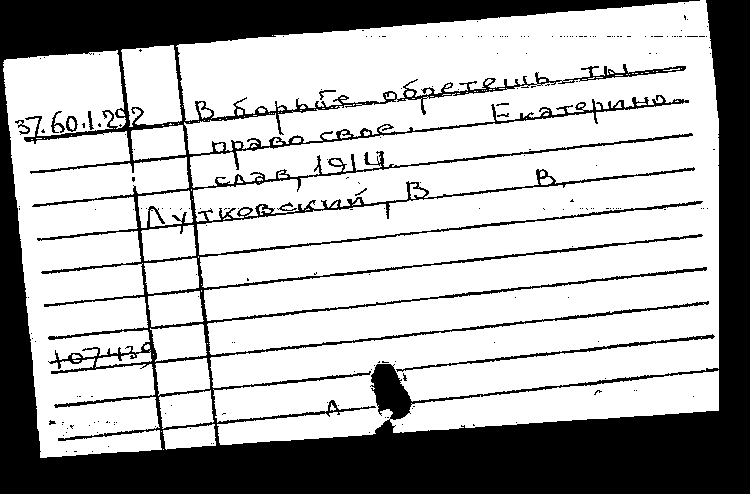 37.60.1.292 В борьбе обретешь ты
право свое. Екатерино-
слав, 1914.
Лутковский, В. В.
107439
А